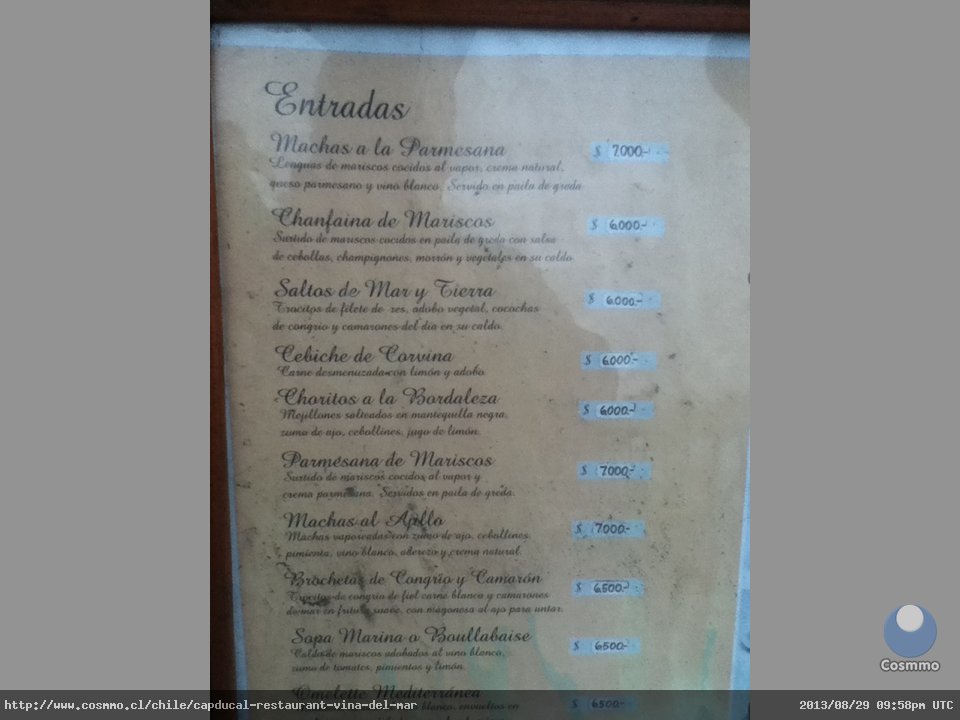 Entradas
Machas a la Parmesana $ 7.000.-
Lenguas de mariscos cocidos al vapor, crema natural,
queso parmesano y vino blanco. Servido en paila de greda
Chanfaina de Mariscos $ 6.000.-
Surtido de mariscos cocidos en paila de greda con salsa
de cebollas, champignones, morrón y vegetales en su caldo
Saltos de Mar y Tierra $ 6.000.-
Trocitos de filete de res, adobo vegetal, cocochas
de congrio y camarones del dia en su caldo.
Cebiche de Corvina $ 6.000.-
Carne desmenuzada con limón y adobo
Choritos a la Bordaleza $ 6.000.-
Mejillones salteados en mantequilla negra,
zumo de ajo, cebollines, jugo de limón.
Parmesana de Mariscos $ 7000.-
Surtido de mariscos cocidos al vapor y
crema parmesana. Servidos en paila de greda.
Machas al Apllo $ 7.000.-
Machas vaporeadas con zumo de ajo, cebollines,
pimienta, vino blanco, aderezo y crema natural.
Brochetas de Congrio y Camarón $ 6.500.-
Trocitos de congrio de fiel carne blanca y camarones
de mar en fritura suave, con mayonesa al ajo para untar.
Sopa Marina o Boullabaise $ 6500.-
Caldo de mariscos adobados al vino blanco,
zumo de tomates, pimientos y limón.
Omelette Mediterránea $ 6500.-
blanco, envueltos en
Cosmmo
http://www.cosmmo.cl/chile/capducal-restaurant-vina-del-mar 2013/08/29 09:58pm UTC